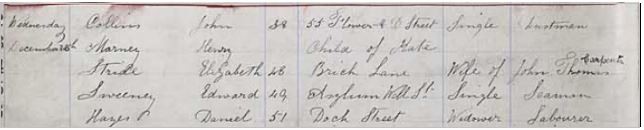 Wednesday Collins John 38 55 Flower & D Street Single Dustman
December Marney Henry Child of Kate
Stride Elizabeth 48 Brick Lane Wife of John Thomas Carpenter
Sweeney Edward 49 Asylum St. Single Seaman
Hayes Daniel 51 Dock Street Widower Labourer